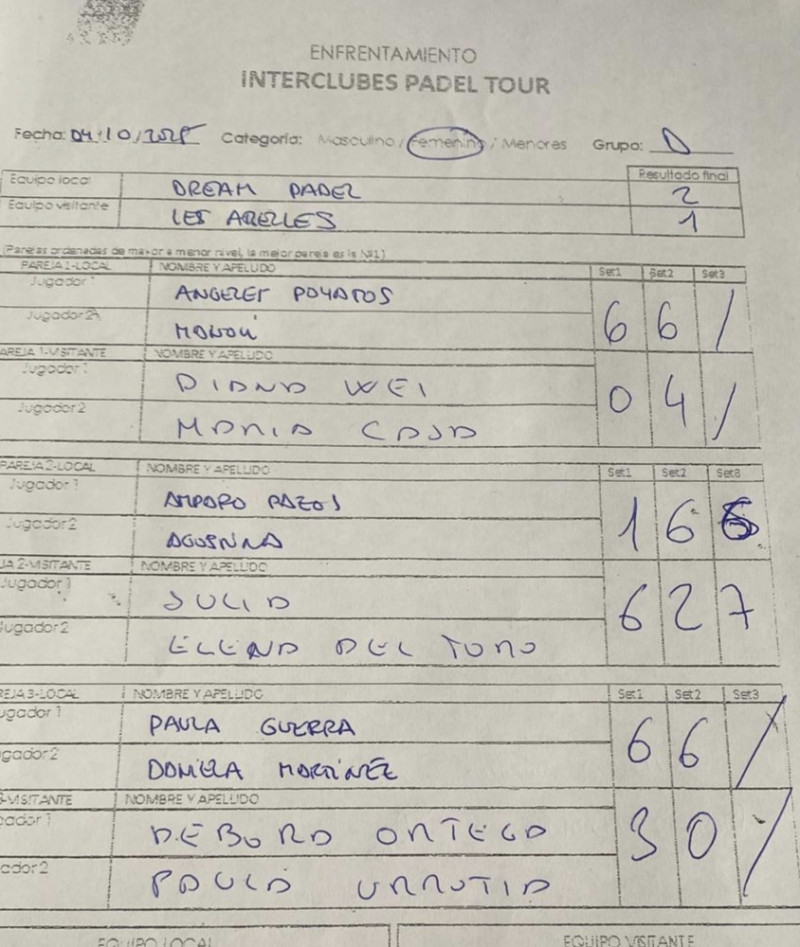 ENFRENTAMIENTO
INTERCLUBES PADEL TOUR
Fecha: 04/10/2025 Categoría: Masculino / Femenino / Menores Grupo: D
Resultado final
Equipo local DREAM PADEL 2
Equipo visitante LES ABELLES 1
(Parejas ordenadas de mayor a menor nivel, la mejor pareja es la Nº1)
PAREJA 1-LOCAL NOMBRE Y APELLIDO Set1 Set2 Set3
Jugador 1 ANGELES POYATOS
Jugador 2 6 6 /
AREJA 1-VISITANTE NOMBRE Y APELLIDO
Jugador 1 DIANA WEI
0 4 /
Jugador 2 MARIA CASA
PAREJA 2-LOCAL NOMBRE Y APELLIDO Set1 Set2 Set3
Jugador 1 AMPARO PAZOS
1 6
Jugador 2 AGUSTINA
JA 2-VISITANTE NOMBRE Y APELLIDO
Jugador 1 JULIA
6 2 7
Jugador 2 ELENA DEL TORO
REJA 3-LOCAL NOMBRE Y APELLIDO Set1 Set2 Set3
ugador 1 PAULA GUERRA
6 6 /
gador 2 DANIELA MARTINEZ
3-VISITANTE NOMBRE Y APELLIDO
gador 1 DEBORA ORTEGA
3 0 /
ador 2 PAULA URRUTIA
EQUIPO LOCAL EQUIPO VISITANTE